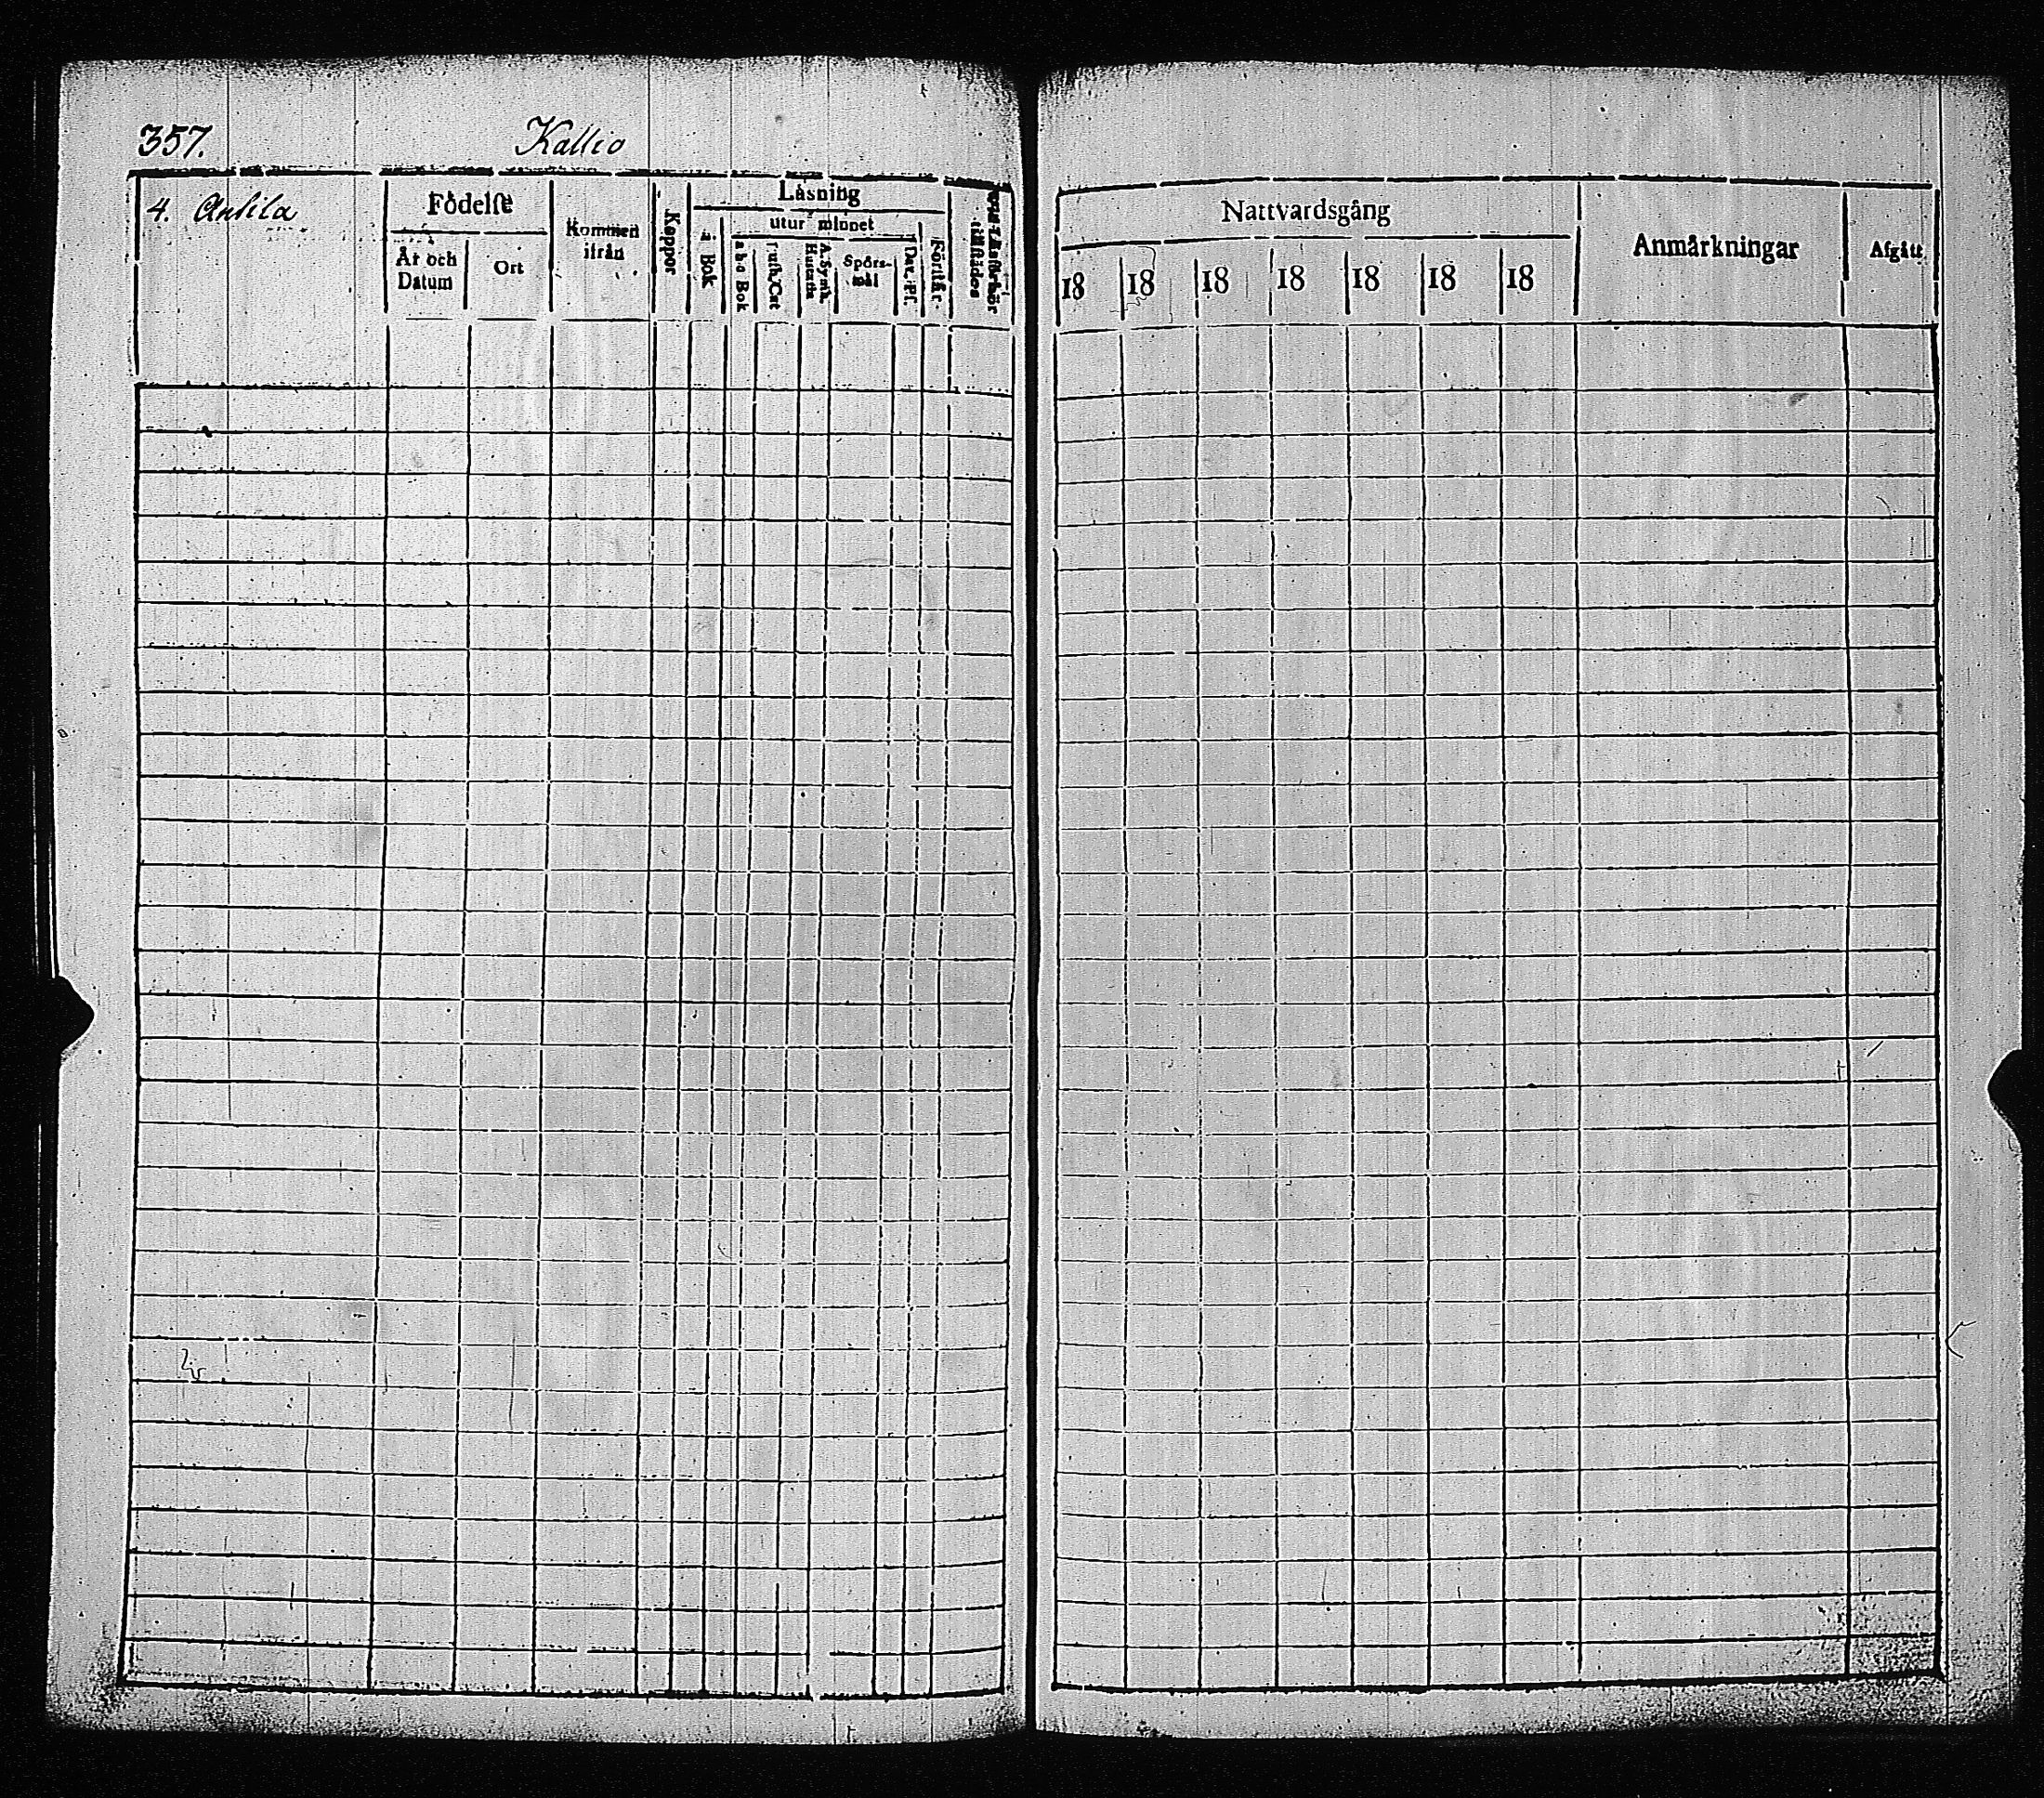 357. Kallio
4. Antila
Födelse
År och Datum
Ort
Kommen ifrån
Koppor
Läsning
i Bok
utur minnet
a b c Bok
Luth. Cat
A. Symb. Hustafla
Spörs-mål
Dav. Ps.
Förstår.
Nattvardsgång
18 18 18 18 18 18 18
Anmärkningar
Afgått